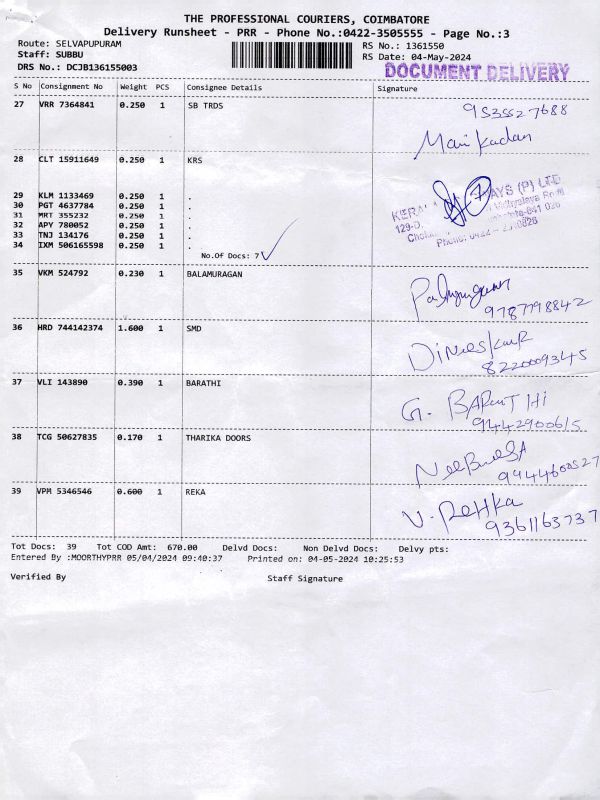 THE PROFESSIONAL COURIERS, COIMBATORE
Delivery Runsheet - PRR - Phone No.:0422-3505555 - Page No.:3
Route: SELVAPUPURAM
RS No.: 1361550
Staff: SUBBU
RS Date: 04-May-2024
DRS No.: DCJB136155003
DOCUMENT DELIVERY
S No Consignment No Weight PCS Consignee Details Signature
27 VRR 7364841 0.250 1 SB TRDS
9535527688
Manikadan
28 CLT 15911649 0.250 1 KRS
29 KLM 1133469 0.250 1 .
30 PGT 4637784 0.250 1 .
31 MRT 355232 0.250 1 .
32 APY 780052 0.250 1 .
33 TNJ 134176 0.250 1 .
34 IXM 506165598 0.250 1 .
No.Of Docs: 7
AYS (P) LTD
Phone: 0422
35 VKM 524792 0.230 1 BALAMURAGAN
9787798842
36 HRD 744142374 1.600 1 SMD
8220009345
37 VLI 143890 0.390 1 BARATHI
G. BARATHI
9442900615
38 TCG 50627835 0.170 1 THARIKA DOORS
9944600527
39 VPM 5346546 0.600 1 REKA
9361163737
Tot Docs: 39 Tot COD Amt: 670.00 Delvd Docs: Non Delvd Docs: Delvy pts:
Entered By :MOORTHYPRR 05/04/2024 09:40:37 Printed on: 04-05-2024 10:25:53
Verified By Staff Signature